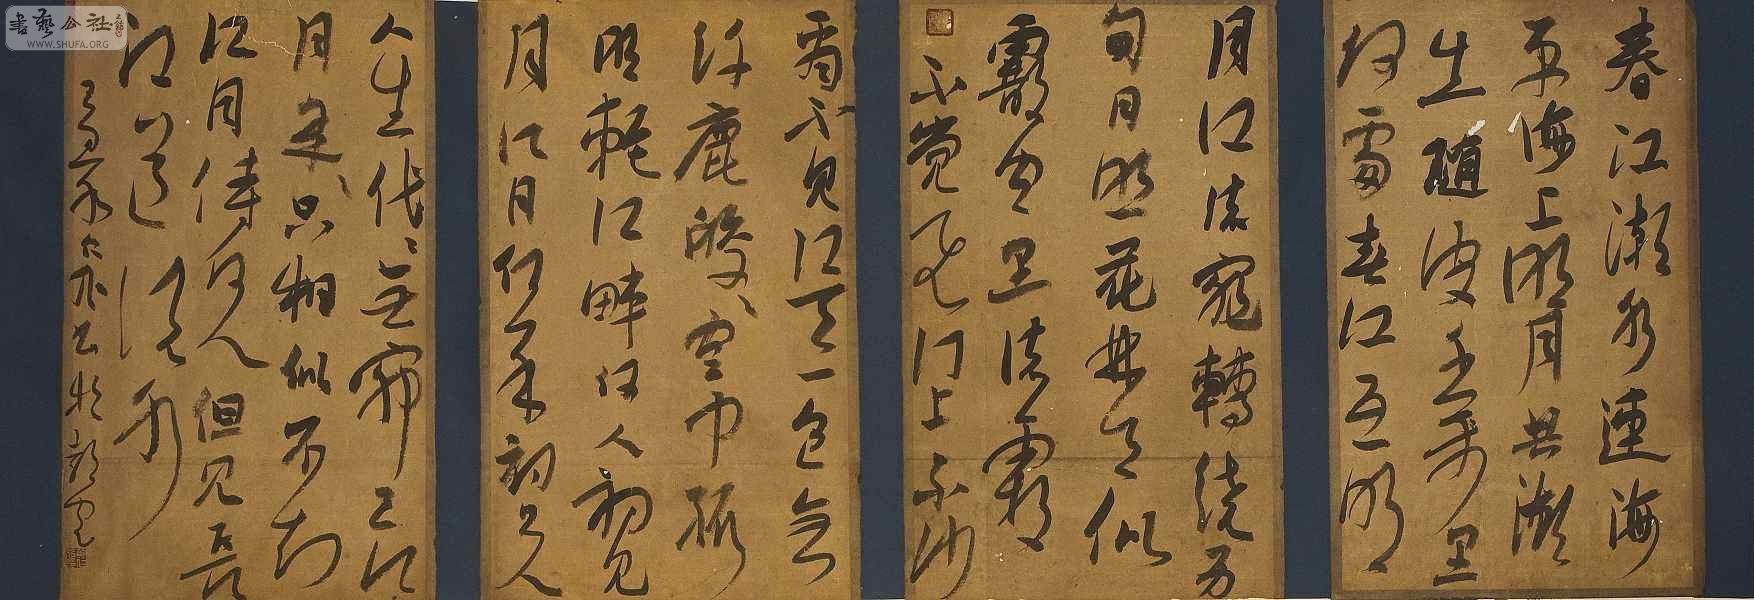 書藝公社
WWW.SHUFA.ORG
春江潮水連海
平海上明月共潮
生隨波千萬里
何處春江無明
月江流宛轉繞芳
甸月照花林皆似
霰空里流霜
不覺飛汀上白沙
看不見江天一色無
纖塵皎〻空中孤
明輪江畔何人初見
月江月何年初照人
人生代〻無窮已江
月年〻只相似不知
江月待何人但見長
江送流水